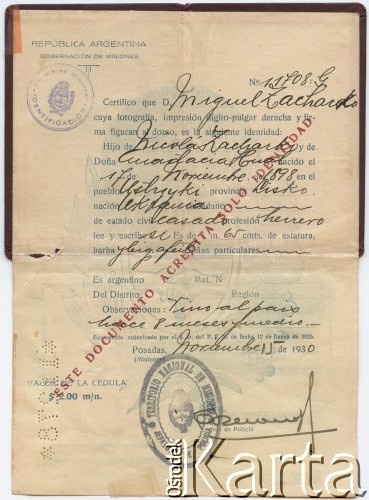 REPÚBLICA ARGENTINA
GOBERNACIÓN DE MISIONES
IDENTIFICACION
No 11708.G
Certifico que D. Miguel Zacharko
cuya fotografía, impresión dígito-pulgar derecha y fir-
ma figuran al dorso, es la siguiente identidad:
Hijo de Nicolás Zacharko y de
Doña nacido el
17 de Noviembre 1878 en el
pueblo Ustryki provincia Lisko
nación Ukrania
de estado civil casado profesión Herrero
lee y escribe si 1 m. 65 cmts. de estatura,
barba y bigote afeita
señas particulares
Es argentino Mat. N.
Del Distrito Región
Observaciones: Vino al país
hace 8 meses y medio
Documento autorizado por el de fecha 12 de Enero de 1925.
Posadas, Noviembre 15 de 1930
(Misiones)
ESTE DOCUMENTO ACREDITA SOLO IDENTIDAD
VALOR DE LA CÉDULA
$ 2.00 m/n.
TERRITORIO NACIONAL DE MISIONES
POLICIA
Jefe de Policía
Ośrodek
Karta